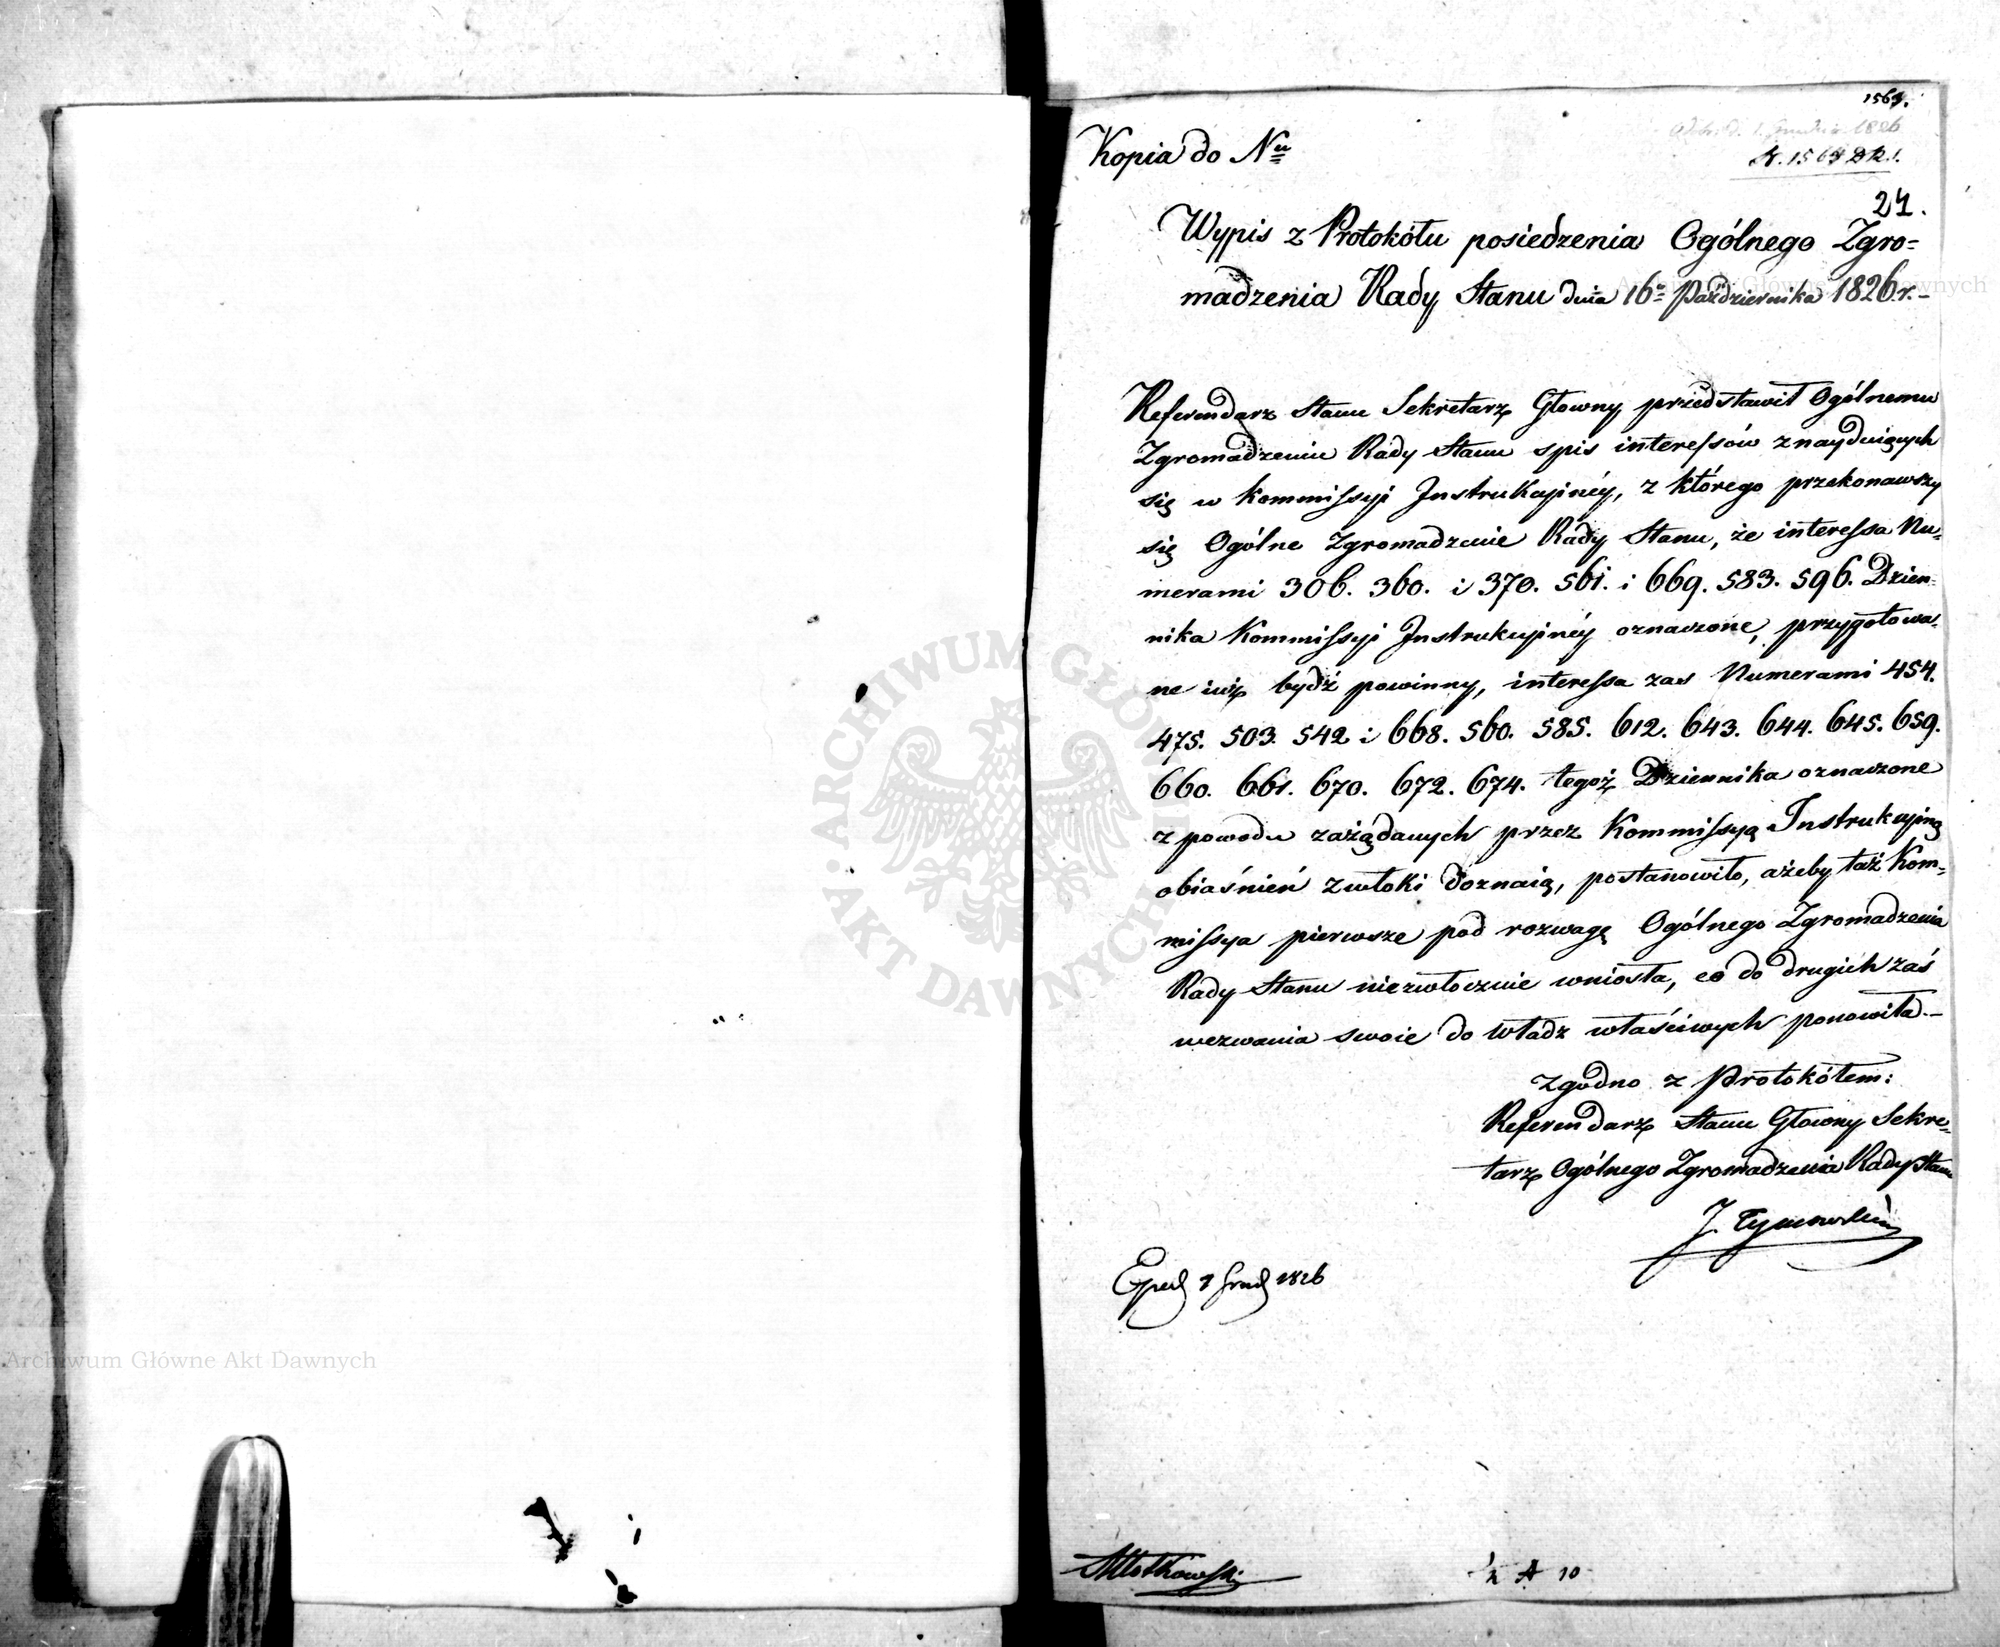 Kopia do Nu
1826
24.
Wypis z Protokółu posiedzenia Ogólnego Zgro=
madzenia Rady Stanu dnia 16o Października 1826 r.-
Referendarz Stanu Sekretarz Głowny przedstawił Ogólnemu
Zgromadzeniu Rady Stanu spis interessów znayduiących
się w Kommissyi Instrukcyinéy, z którego przekonawszy
się Ogólne Zgromadzenie Rady Stanu, że interessa Nu=
merami 306. 360. i 370. 561. i 669. 583. 596. Dzien=
nika Kommissyi Instrukcyinéy oznaczone, przygotowa=
ne iuż bydź powinny, interessa zas Numerami 454.
475. 503. 542 i 668. 560. 585. 612. 643. 644. 645. 659.
660. 661. 670. 672. 674. tegoż Dziennika oznaczone
z powodu zażądanych przez Kommissyą Instrukcyiną
obiaśnień zwłoki doznaią, postanowiło, ażeby taż Kom=
missya pierwsze pod rozwagę Ogólnego Zgromadzenia
Rady Stanu niezwłocznie wniosła, co do drugich zaś
wezwania swoie do Władz właściwych ponowiła.-
Zgodno z Protokółem:
Referendarz Stanu Głowny Sekre=
tarz Ogólnego Zgromadzenia Rady Stanu
J. Tymowski
1826
A 10
Archiwum Główne Akt Dawnych
Archiwum Główne Akt Dawnych
ARCHIWUM GŁÓWNE · AKT DAWNYCH ·